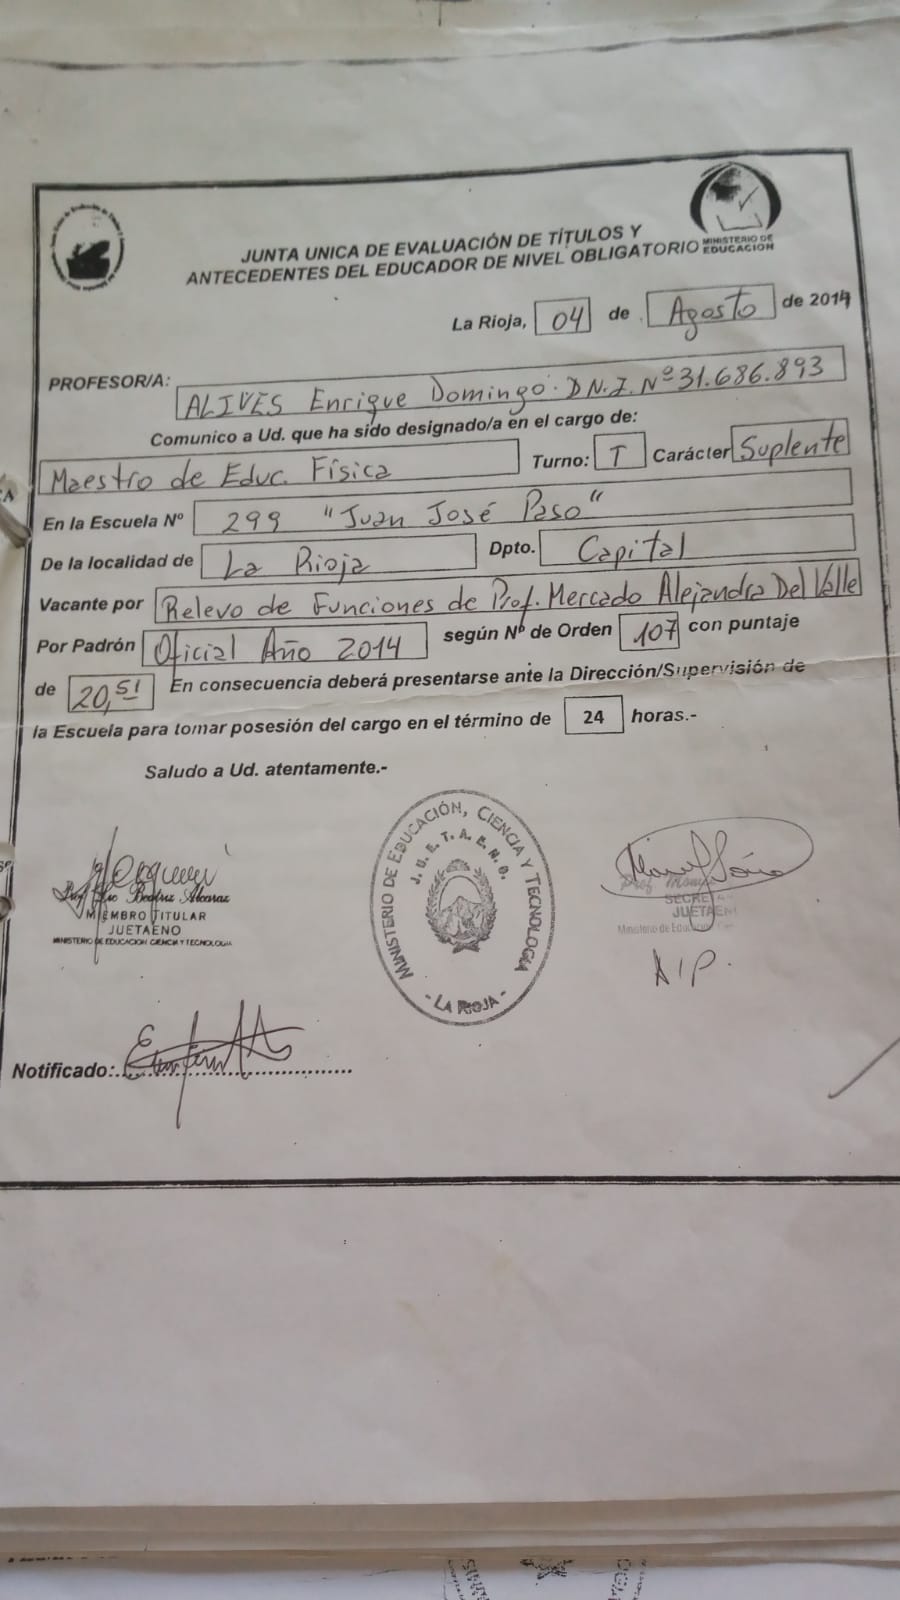 JUNTA UNICA DE EVALUACIÓN DE TÍTULOS Y
ANTECEDENTES DEL EDUCADOR DE NIVEL OBLIGATORIO
MINISTERIO DE
EDUCACION
La Rioja, 04 de Agosto de 2014
PROFESOR/A: ALIVES Enrique Domingo. D.N.I. Nº 31.686.893
Comunico a Ud. que ha sido designado/a en el cargo de:
Maestro de Educ. Física Turno: T Carácter Suplente
En la Escuela Nº 299 "Juan José Paso"
De la localidad de La Rioja Dpto. Capital
Vacante por Relevo de Funciones de Prof. Mercado Alejandra Del Valle
Por Padrón Oficial Año 2014 según Nº de Orden 107 con puntaje
de 20,51 En consecuencia deberá presentarse ante la Dirección/Supervisión de
la Escuela para tomar posesión del cargo en el término de 24 horas.-
Saludo a Ud. atentamente.-
MINISTERIO DE EDUCACIÓN, CIENCIA Y TECNOLOGIA
J. U. E. T. A. E. N. O.
- LA RIOJA -
Beatriz Alcaraz
MIEMBRO TITULAR
JUETAENO
MINISTERIO DE EDUCACION CIENCIA Y TECNOLOGIA
Prof.
JUETAENO
Ministerio de
A/P.
Notificado: